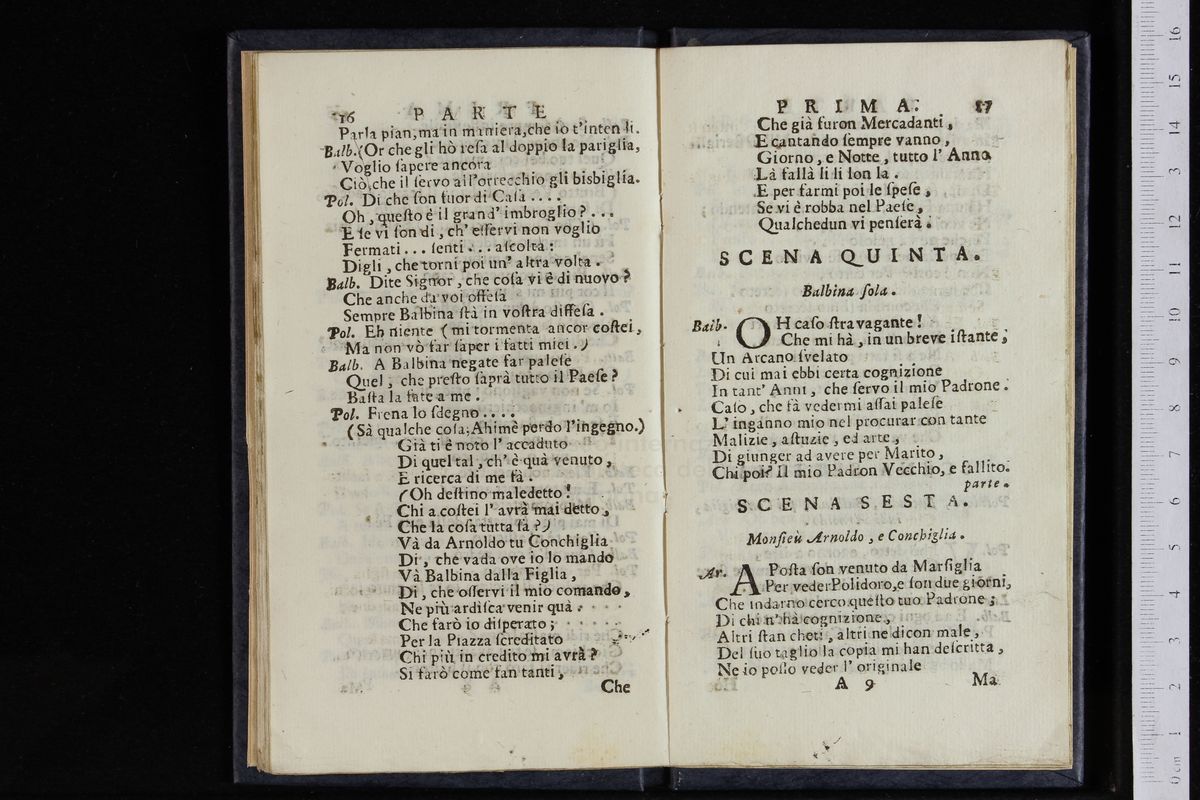 16 PARTE
Parla pian, ma in maniera, che io t'intendi.
Balb. (Or che gli hò reſa al doppio la pariglia,
Voglio ſapere ancora
Ciò, che il ſervo all'orrecchio gli bisbiglia.
Pol. Di che ſon fuor di Caſa ....
Oh, queſto è il grand' imbroglio? ...
E ſe vi ſon di, ch' eſſervi non voglio
Fermati ... ſenti ... aſcolta:
Digli, che torni poi un' altra volta.
Balb. Dite Signor, che coſa vi è di nuovo?
Che anche da voi offeſa
Sempre Balbina ſtà in voſtra diffeſa.
Pol. Eh niente (mi tormenta ancor coſtei,
Ma non vò far ſaper i fatti miei.)
Balb. A Balbina negate far paleſe
Quel, che preſto ſaprà tutto il Paeſe?
Baſta la fate a me.
Pol. Frena lo ſdegno ....
(Sà qualche coſa; Ahimè perdo l'ingegno.)
Già ti è noto l' accaduto
Di quel tal, ch' è quà venuto,
E ricerca di me fà.
(Oh deſtino maledetto!
Chi a coſtei l' avrà mai detto,
Che la coſa tutta ſà?)
Và da Arnoldo tu Conchiglia
Di, che vada ove io lo mando
Và Balbina dalla Figlia,
Di, che oſſervi il mio comando,
Ne più ardiſca venir quà.
Che farò io diſperato;
Per la Piazza ſcreditato
Chi più in credito mi avrà?
Si farò come fan tanti,
Che
PRIMA. 17
Che già furon Mercadanti,
E cantando ſempre vanno,
Giorno, e Notte, tutto l' Anno
Là fallà li li lon la.
E per farmi poi le ſpeſe,
Se vi è robba nel Paeſe,
Qualchedun vi penſerà.
SCENA QUINTA.
Balbina ſola.
Balb. OH caſo ſtravagante!
Che mi hà, in un breve iſtante,
Un Arcano ſvelato
Di cui mai ebbi certa cognizione
In tant' Anni, che ſervo il mio Padrone.
Caſo, che fà vedermi aſſai paleſe
L' inganno mio nel procurar con tante
Malizie, aſtuzie, ed arte,
Di giunger ad avere per Marito,
Chi poi? Il mio Padron Vecchio, e fallito.
parte.
SCENA SESTA.
Monſieù Arnoldo, e Conchiglia.
Ar. APoſta ſon venuto da Marſiglia
Per veder Polidoro, e ſon due giorni,
Che indarno cerco queſto tuo Padrone;
Di chi n' hà cognizione,
Altri ſtan cheti, altri ne dicon male,
Del ſuo taglio la copia mi han deſcritta,
Ne io poſſo veder l' originale
A 9 Ma
0 cm 1 2 3 4 5 6 7 8 9 10 11 12 13 14 15 16